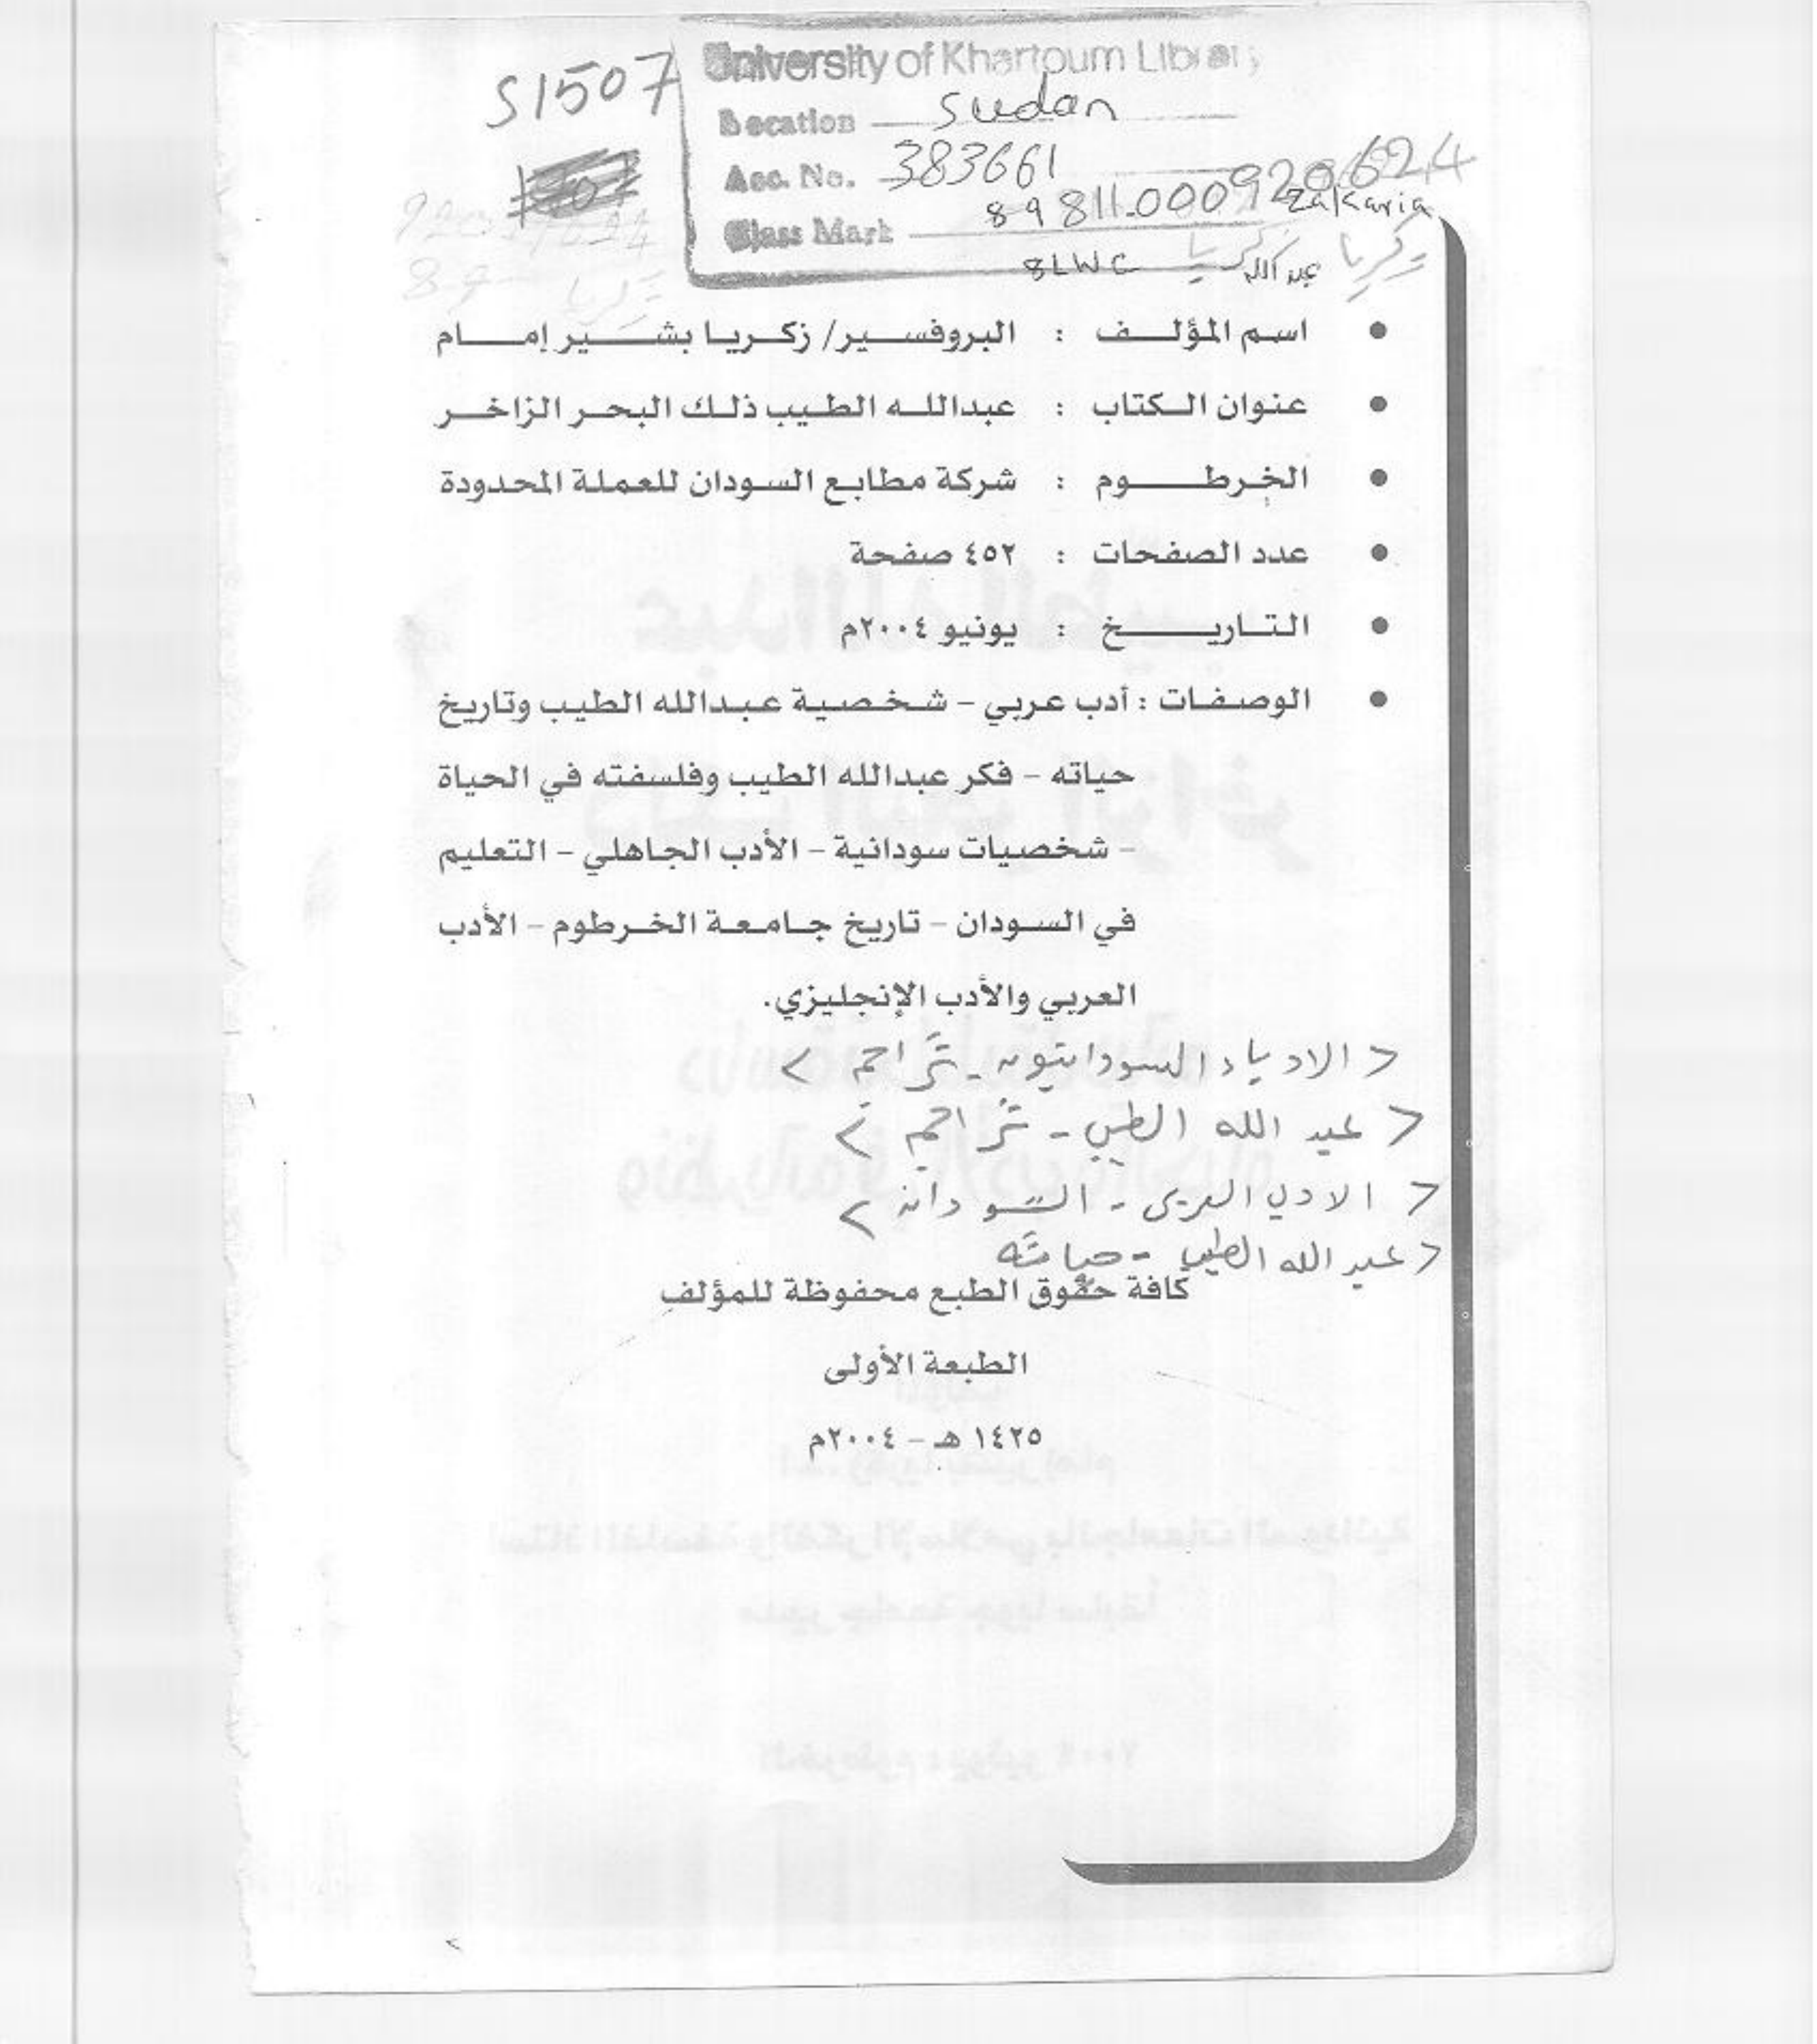 S1507
University of Khartoum Library
Location Sudan
Acc. No. 383661
920.624
Class Mark 89811.0009 Zakaria
زكريا
8LWC عبد الله
• اسم المؤلف : البروفسير/ زكريا بشير إمام
• عنوان الكتاب : عبدالله الطيب ذلك البحر الزاخر
• الخرطوم : شركة مطابع السودان للعملة المحدودة
• عدد الصفحات : ٤٥٢ صفحة
• التاريخ : يونيو ٢٠٠٤م
• الوصفات : أدب عربي – شخصية عبدالله الطيب وتاريخ
حياته – فكر عبدالله الطيب وفلسفته في الحياة
– شخصيات سودانية – الأدب الجاهلي – التعليم
في السودان – تاريخ جامعة الخرطوم – الأدب
العربي والأدب الإنجليزي.
< الادباء السودانيون - تراجم >
< عبد الله الطيب - تراجم >
< الادب العربى - السودان >
< عبد الله الطيب - حياته
كافة حقوق الطبع محفوظة للمؤلف
الطبعة الأولى
١٤٢٥ هـ – ٢٠٠٤م